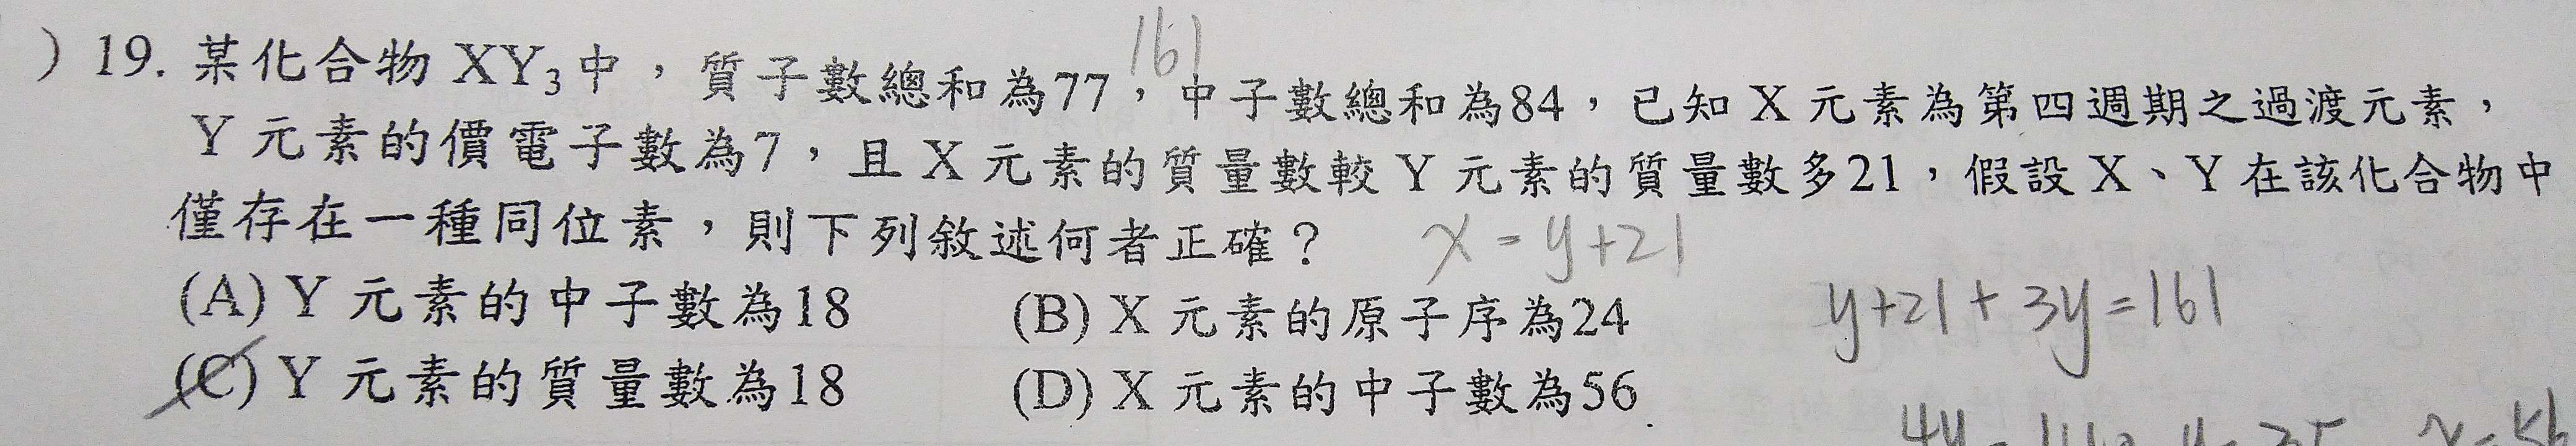 161
) 19. 某化合物 XY₃中，質子數總和為77，中子數總和為84，已知 X 元素為第四週期之過渡元素，
Y 元素的價電子數為7，且 X 元素的質量數較 Y 元素的質量數多21，假設 X、Y 在該化合物中
僅存在一種同位素，則下列敘述何者正確？ x = y+21
(A) Y 元素的中子數為18 (B) X 元素的原子序為24 y+21+3y=161
(C) Y 元素的質量數為18 (D) X 元素的中子數為56